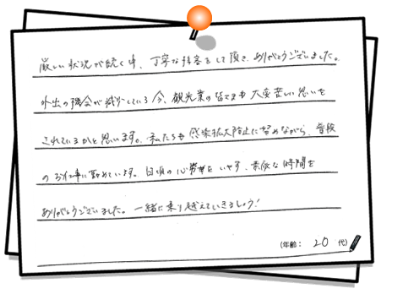 厳しい状況が続く中、丁寧な接客をして頂き、ありがとうございました。
外出の機会が減少している今、観光業の皆さまも大変苦しい思いを
されているかと思います。私たちも感染拡大防止に努めながら、普段
のお仕事に勤めています。日頃の心労事をいやす、素敵な時間を
ありがとうございました。一緒に乗り越えていきましょう!
(年齢: 20 代)